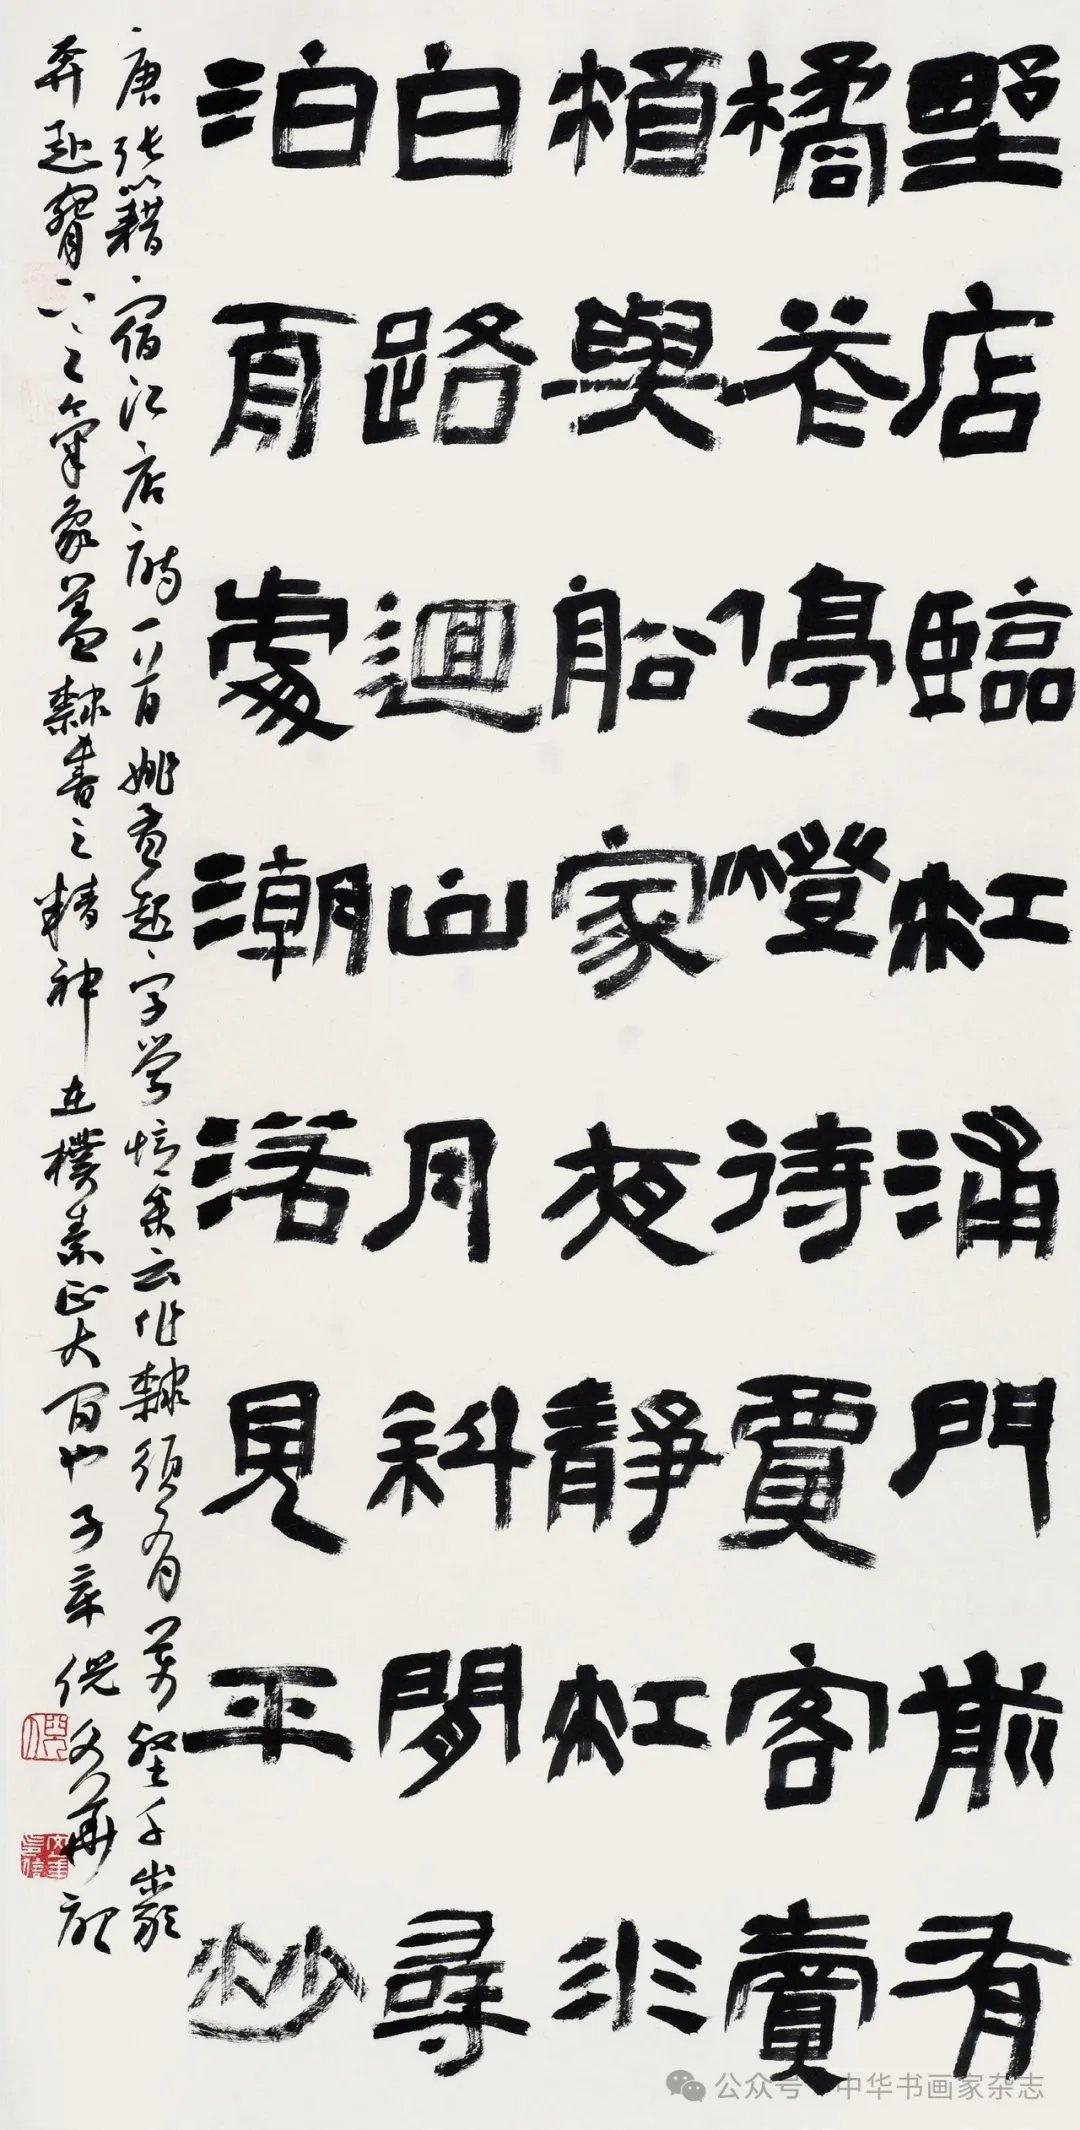 野店臨江浦門前有
橘花停燈待賈客賣
酒與船家夜靜江水
白路迴山月斜閒尋
泊舟處潮落見平沙
唐張籍宿江店詩一首姚孟起字學憶參云作隸須有萬壑千巖
奔赴腕下之氣象蓋隸書之精神在樸素正大間也 倪文華
公众号·中华书画家杂志